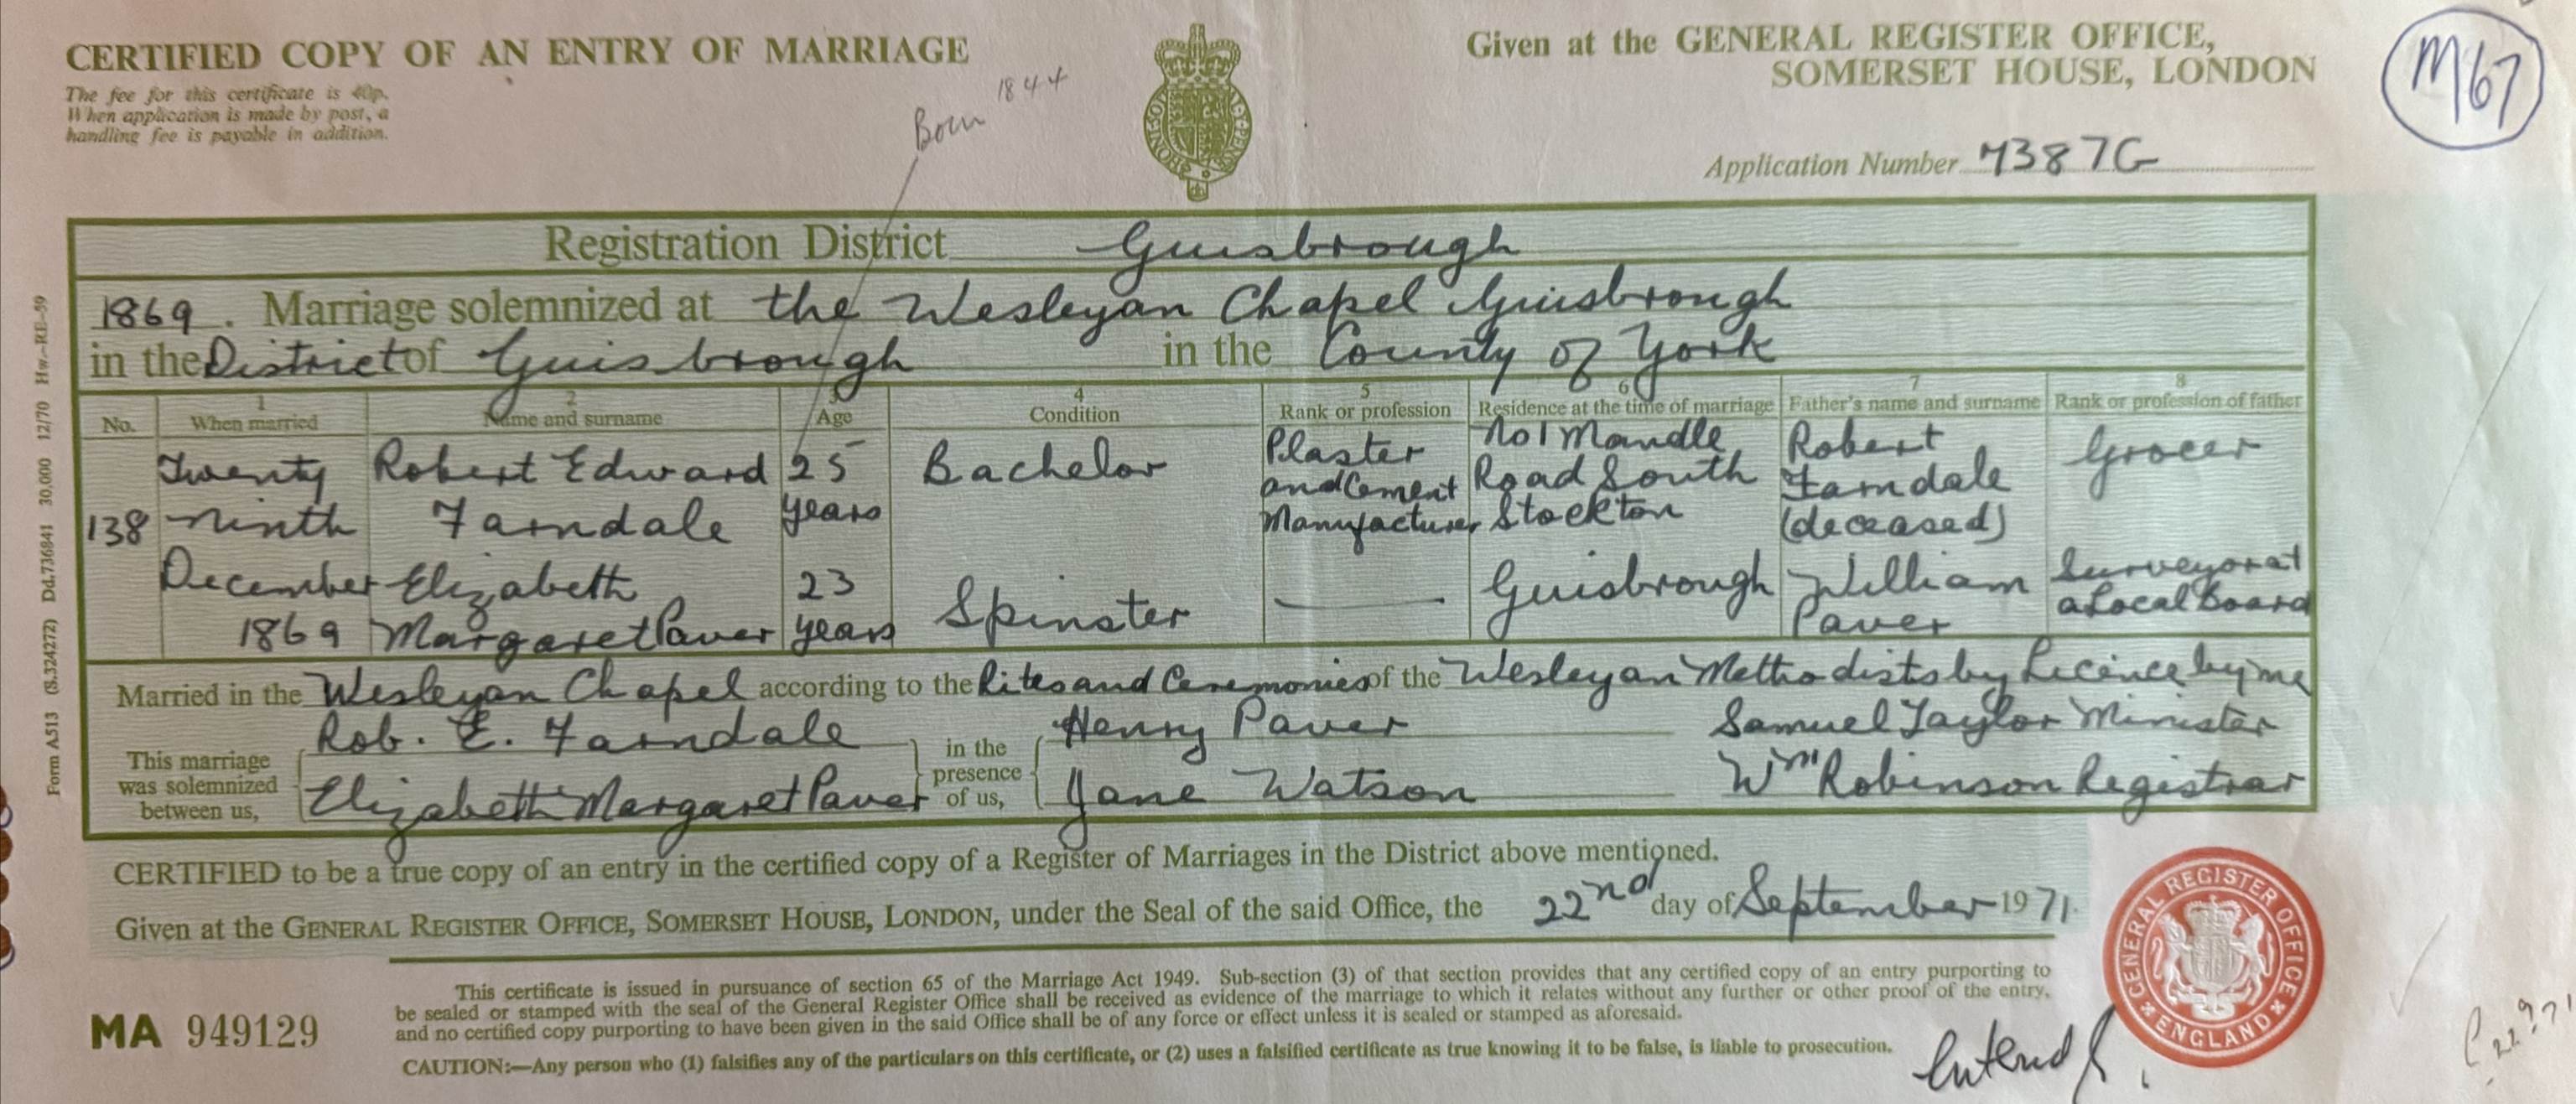 CERTIFIED COPY OF AN ENTRY OF MARRIAGE
The fee for this certificate is 40p.
When application is made by post, a
handling fee is payable in addition.
Born 1844
Given at the GENERAL REGISTER OFFICE,
SOMERSET HOUSE, LONDON
Application Number 7387G
M67
Registration District Guisbrough
1869. Marriage solemnized at the Wesleyan Chapel Guisbrough
in the District of Guisbrough in the County of York
1 2 3 4 5 6 7 8
No. When married Name and surname Age Condition Rank or profession Residence at the time of marriage Father's name and surname Rank or profession of father
138 Twenty ninth December 1869
Robert Edward Farndale
25 years
Bachelor
Plaster and Cement Manufacturer
No 1 Mandle Road South Stockton
Robert Farndale (deceased)
Grocer
Elizabeth Margaret Paver
23 years
Spinster
Guisbrough
William Paver
Surveyor at a Local Board
Married in the Wesleyan Chapel according to the Rites and Ceremonies of the Wesleyan Methodists by Licence by me
This marriage was solemnized between us,
Rob. E. Farndale
Elizabeth Margaret Paver
in the presence of us,
Henry Paver
Jane Watson
Samuel Taylor Minister
Wm Robinson Registrar
CERTIFIED to be a true copy of an entry in the certified copy of a Register of Marriages in the District above mentioned.
Given at the GENERAL REGISTER OFFICE, SOMERSET HOUSE, LONDON, under the Seal of the said Office, the 22nd day of September 1971.
This certificate is issued in pursuance of section 65 of the Marriage Act 1949. Sub-section (3) of that section provides that any certified copy of an entry purporting to
be sealed or stamped with the seal of the General Register Office shall be received as evidence of the marriage to which it relates without any further or other proof of the entry,
and no certified copy purporting to have been given in the said Office shall be of any force or effect unless it is sealed or stamped as aforesaid.
MA 949129
CAUTION:—Any person who (1) falsifies any of the particulars on this certificate, or (2) uses a falsified certificate as true knowing it to be false, is liable to prosecution.
GENERAL REGISTER OFFICE ENGLAND
Form A513 (S.324272) Dd.736841 30,000 12/70 Hw.—RE-59